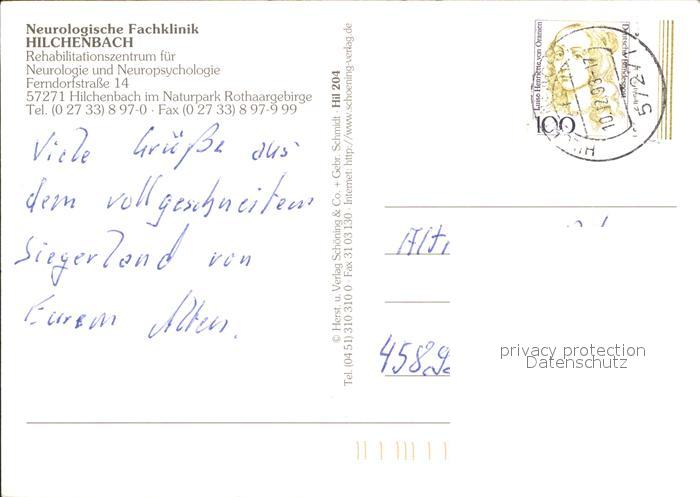 Neurologische Fachklinik
HILCHENBACH
Rehabilitationszentrum für
Neurologie und Neuropsychologie
Ferndorfstraße 14
57271 Hilchenbach im Naturpark Rothaargebirge
Tel. (0 27 33) 8 97-0 · Fax (0 27 33) 8 97-9 99
Viele Grüße aus
dem vollgeschneiten
Siegerland von
Eurem Alten.
© Herst. u. Verlag Schöning & Co. + Gebr. Schmidt · Hil 204
Tel. (04 51) 310 310 0 · Fax 31 03 130 · Internet: http://www.schoening-verlag.de
Luise Henriette von Oranien
Deutsche Bundespost
100
57271
4589
privacy protection
Datenschutz